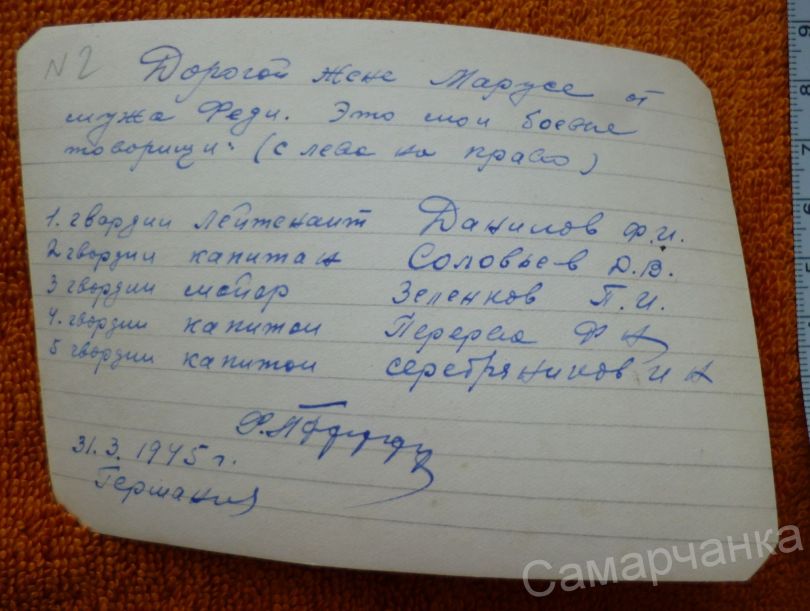 N 2 Дорогой жене Марусе от
мужа Феди. Это мои боевые
товарищи: (с лева на право)
1. гвардии лейтенант Данилов Ф.И.
2 гвардии капитан Соловьев Д.В.
3 гвардии майор Зеленков П.И.
4. гвардии капитан Перерва Ф Н
5 гвардии капитан Серебряников И Н
31.3.1945 г.
Германия
Самарчанка
9
8
7
6